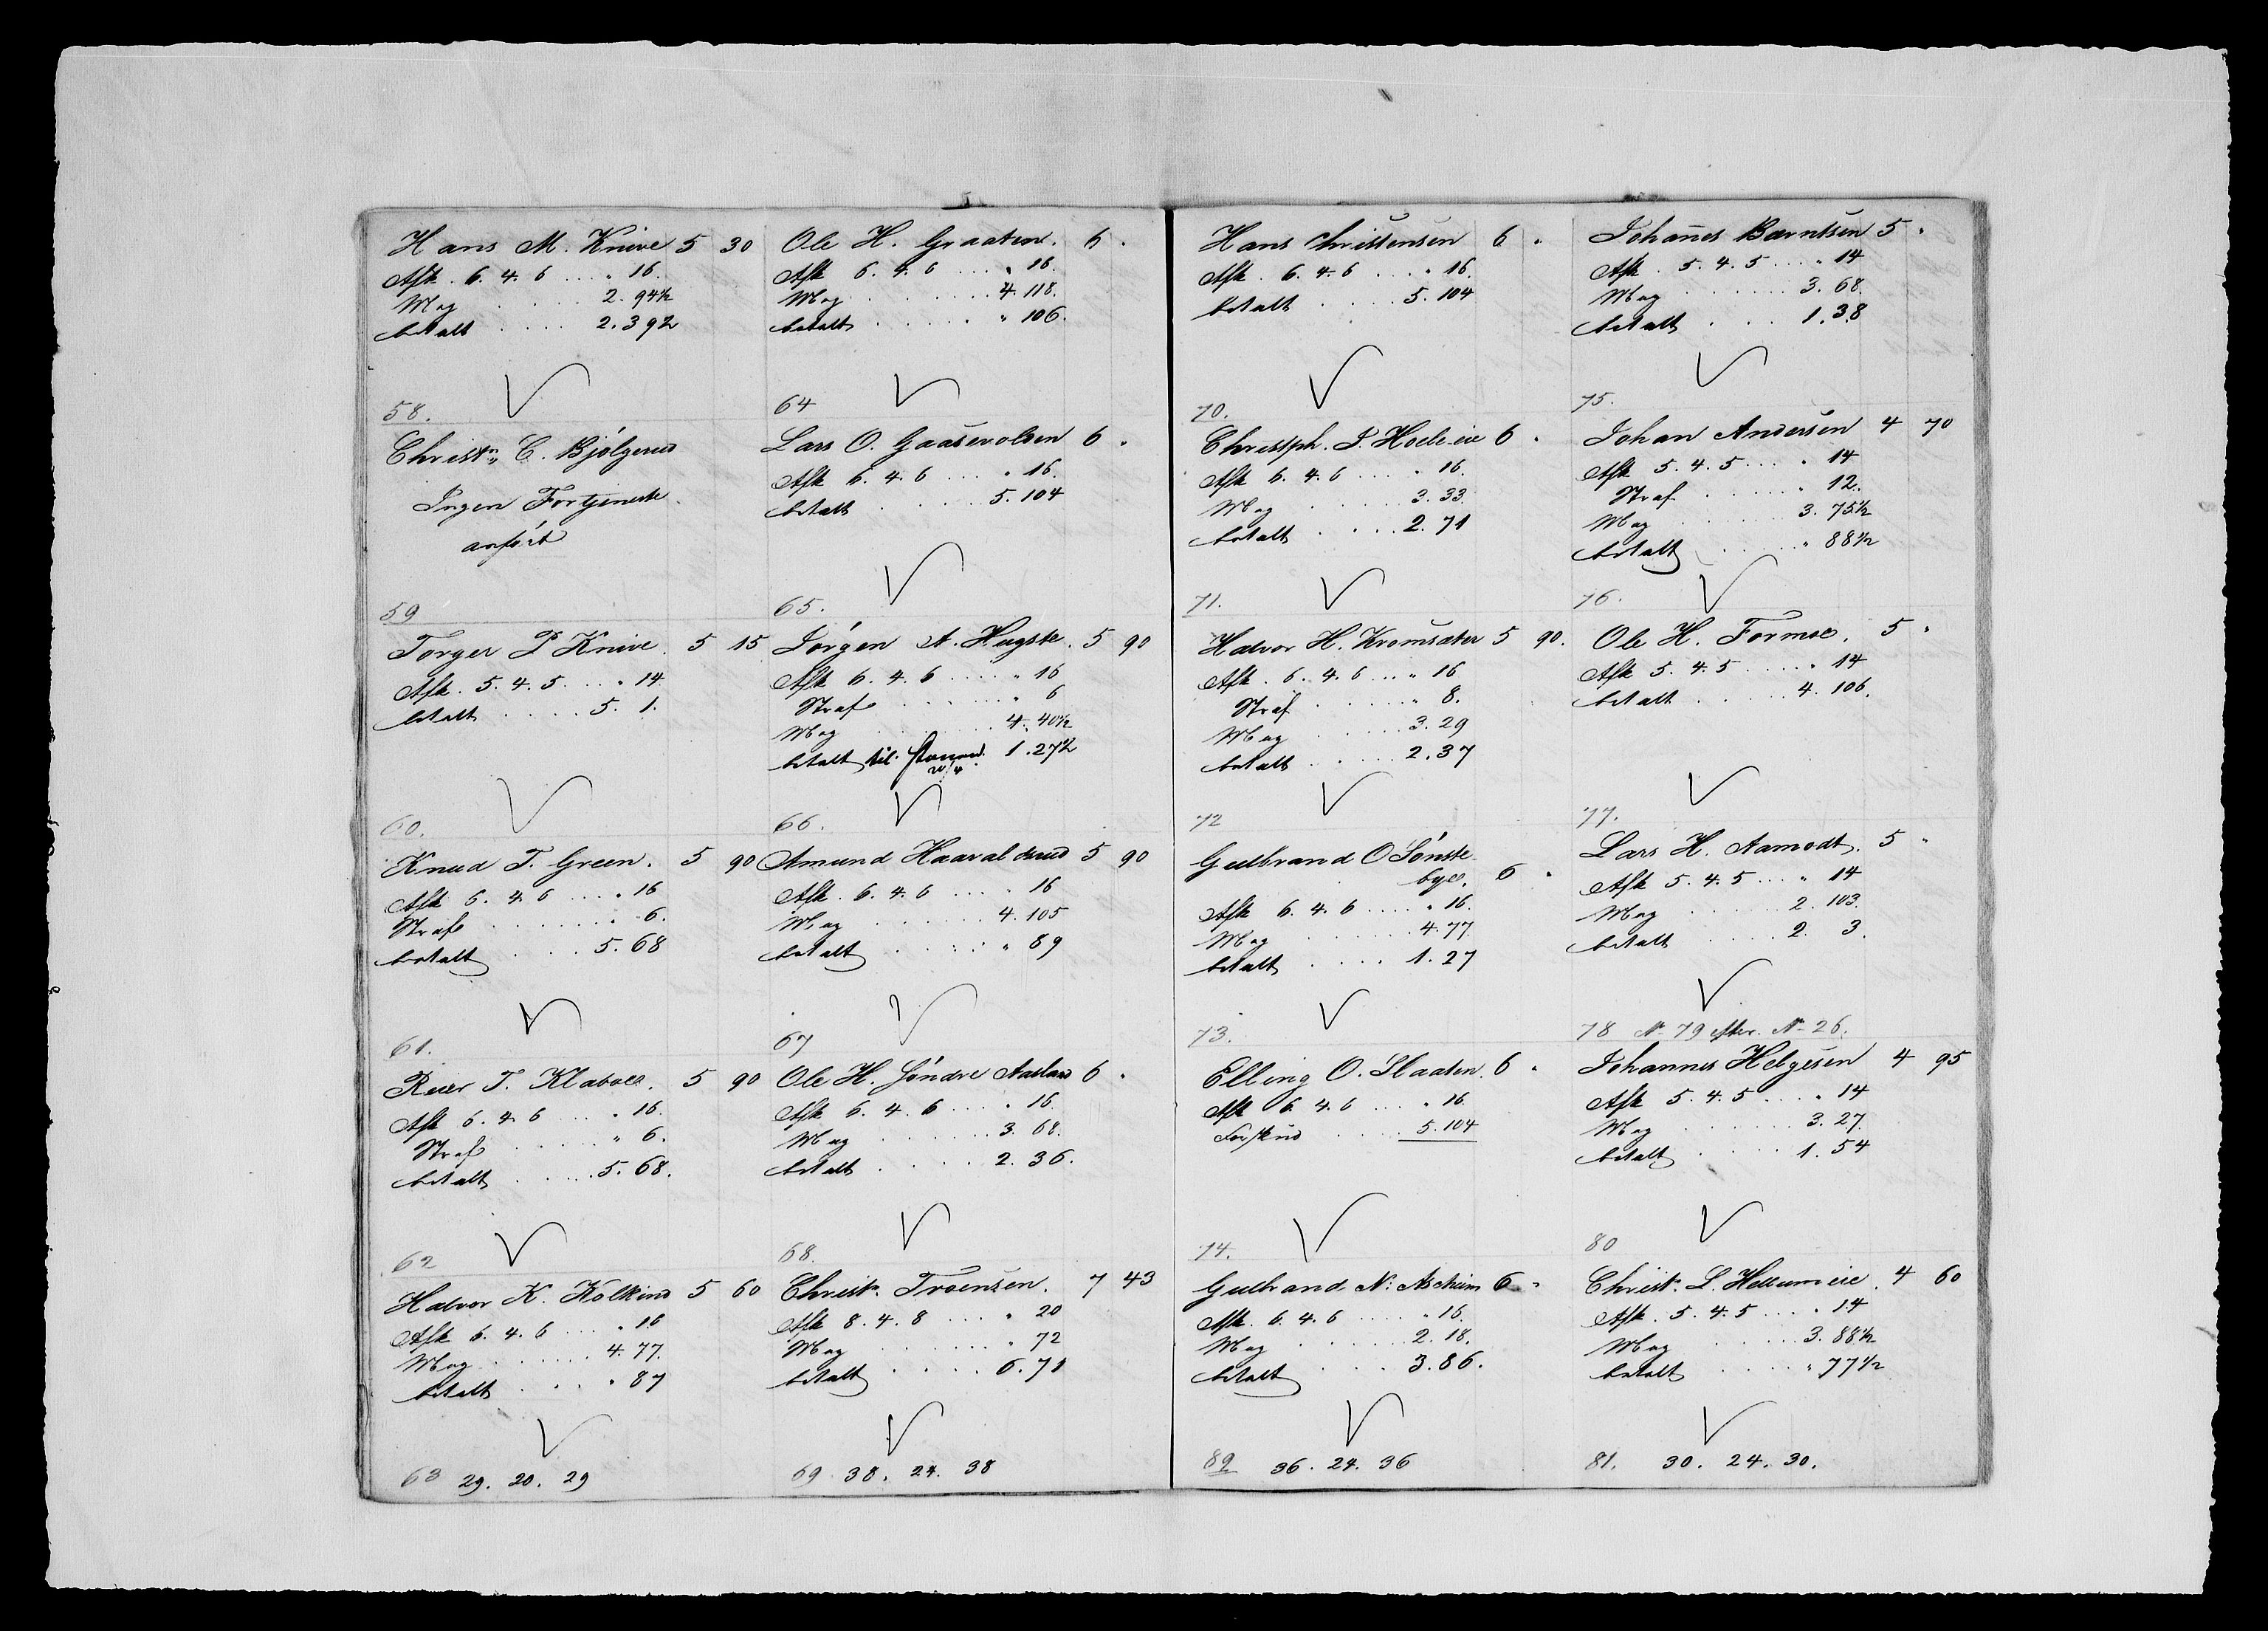 Hans M. Knive 5 30
Afk. 6. 4. 6 .... „ 16.
Mag . . . . . 2. 94½
betalt . . . . 2. 39½
58.
Christn. C. Bjølgerud
Ingen Fortjeneste
anført
59
Torger P Knive. 5 15
Afk. 5. 4. 5. ... „ 14.
betalt . . . . . 5. 1.
60.
Knud T. Green. 5 90
Afk 6. 4. 6 .... „ 16
Straf . . . . . . . „ 6.
betalt . . . . 5. 68
61.
Reer T. Klaboee. 5 90
Afk 6. 4. 6 .... „ 16.
Straf . . . . . „ 6.
betalt . . . . . 5. 68.
62
Halvor K. Kolkind 5 60
Afk 6. 4. 6 .... „ 16
Mag . . . . . . . 4. 77.
betalt . . . . „ 87
63 29. 20. 29
Ole H. Graaten. 6 „
Afk 6. 4. 6 .... „ 16.
Mag . . . . . . . 4. 118.
betalt . . . . . „ 106.
64
Lars O. Gaasevolden 6 „
Afk 6. 4. 6 .... „ 16.
betalt . . . . . 5. 104
65.
Jørgen A. Hugste. 5 90
Afk 6. 4. 6 ..... „ 16
Straf . . . . . . „ 6
Mag . . . . . . . 4. 40½
betalt til 1. 27½
66.
Amund Haavalderud 5 90
Afk. 6. 4. 6 .... „ 16
Mag . . . . . . . 4. 105
betalt . . . . . „ 89
67
Ole H. Søndre Aaslan 6 „
Afk 6. 4. 6 .... „ 16.
Mag . . . . . . . 3. 68.
betalt . . . . . 2. 36.
68.
Christn. Troensen. 7 43
Afk 8. 4. 8 .... „ 20
Mag . . . . . . . „ 72
betalt . . . . . 6. 71
69 38. 24. 38
Hans Christensen 6 „
Afk. 6. 4. 6 .... „ 16.
betalt . . . . 5. 104
70.
Christph. J. Hoele-eie 6 „
Afk 6. 4. 6 .... „ 16.
Mag . . . . . . 3. 33.
betalt . . . . 2. 71
71.
Halvor H. Kromsæter 5 90.
Afk. 6. 4. 6 ... „ 16
Straf . . . . . . „ 8.
Mag . . . . . 3. 29
betalt . . . . . 2. 37
72
Gulbrand O Sønste-
byee. 6 „
Afk 6. 4. 6 .... „ 16.
Mag . . . . . . . 4. 77.
betalt . . . . 1. 27
73.
Elling O. Slaaten. 6 „
Afk 6. 4. 6 .... „ 16.
Forskud . . . . . 5. 104
74.
Gulbrand N. Ascheim 6 „
Afk. 6. 4. 6 .... „ 16.
Mag . . . . . . 2. 18.
betalt . . . . . 3. 86.
89 36. 24. 36
Johañes Berntsen 5 „
Afk. 5. 4. 5 .... „ 14
Mag . . . . . . . 3. 68.
betalt . . . . 1. 38
75.
Johan Andersen 4 70
Afk 5. 4. 5 .... „ 14
Straf . . . . . . „ 12.
Mag . . . . . . . 3. 75½
betalt . . . . „ 88½
76.
Ole H. Formoe. 5 „
Afk 5. 4. 5 ..... „ 14
betalt . . . . . 4. 106.
77.
Lars H. Aamodt. 5 „
Afk 5. 4. 5 .... „ 14
Mag . . . . . . 2. 103.
betalt . . . . . 2. 3.
78 No 79 efter No 26.
Johannes Helgesen 4 95
Afk 5. 4. 5 .... „ 14
Mag . . . . . . . 3. 27.
betalt . . . . . 1. 54
80
Christn. L. Hellumeie. 4 60
Afk. 5. 4. 5 .... „ 14
Mag . . . . . . 3. 88½
betalt . . . . . „ 77½
81. 30. 24. 30.